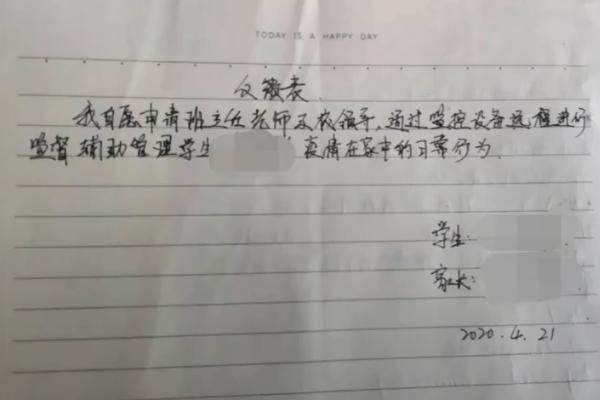 TODAY IS A HAPPY DAY
表
我自愿申请班主任老师及校领导，通过监控设备远程进行
监督辅助管理学生 疫情在家中的日常行为.
学生:
家长:
2020.4.21